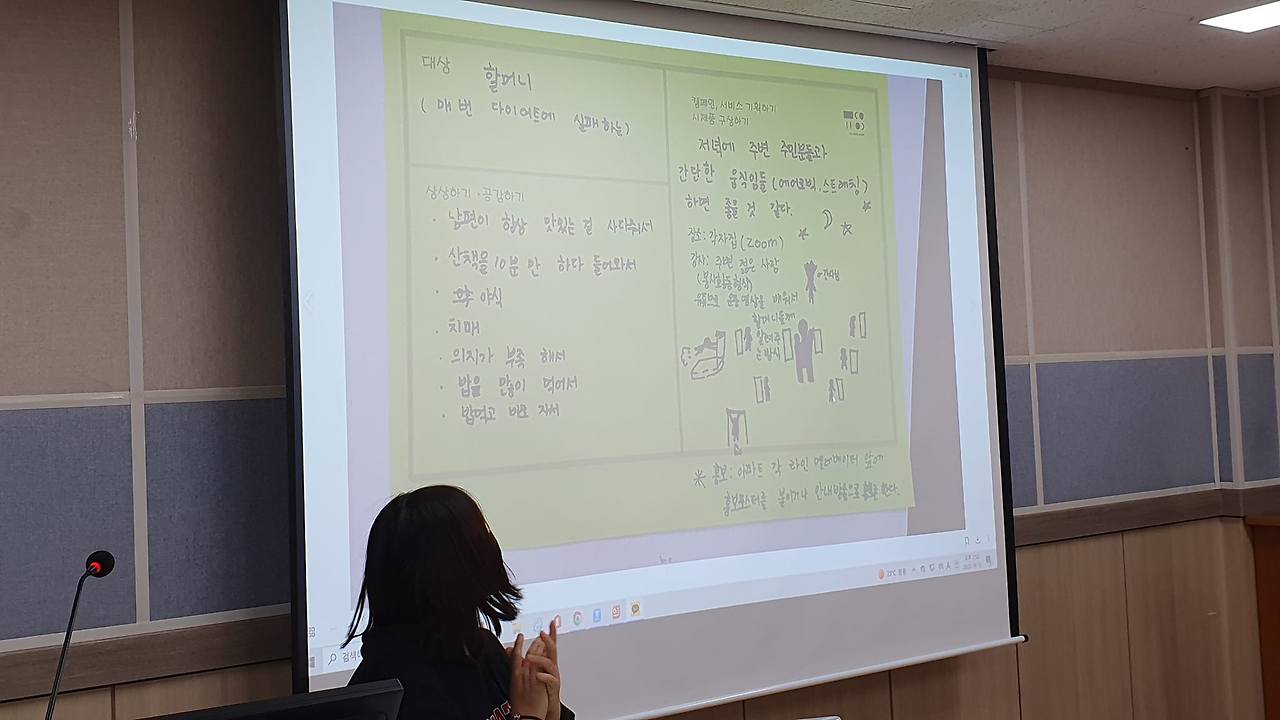 대상 할머니
( 매번 다이어트에 실패하는)
상상하기·공감하기
· 남편이 항상 맛있는 걸 사다줘서
· 산책을 10분만 하다 들어와서
· 야식
· 치매
· 의지가 부족 해서
· 밥을 많이 먹어서
· 밥먹고 바로 자서
캠페인, 서비스 기획하기
시제품 구상하기
저녁에 주변 주민분들과
간단한 움직임들 (에어로빅, 스트레칭)
하면 좋을 것 같다.
장소: 각자집 (ZOOM)
강사: 주변 젊은 사람
(봉사활동형식)
유튜브로 운동영상을 배워서
할머니들께
알려주
는방식
※ 홍보: 아파트 각 라인 엘리베이터 앞에
홍보포스터를 붙이거나 안내방송으로 한다.